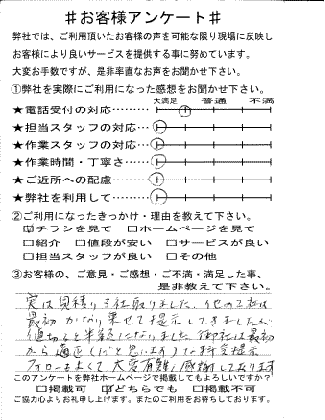 ♯お客様アンケート♯
弊社では、ご利用頂いたお客様の声を可能な限り現場に反映し
お客様により良いサービスを提供する事に努めています。
大変お手数ですが、是非率直なお声をお聞かせ下さい。
①弊社を実際にご利用になった感想をお聞かせ下さい。
大満足 普通 不満
★電話受付の対応
★担当スタッフの対応
★作業スタッフの対応
★作業時間・丁寧さ
★ご近所への配慮
★弊社を利用して
②ご利用になったきっかけ・理由を教えて下さい。
☑チラシを見て □ホームページを見て
□紹介 □値段が安い □サービスが良い
□担当スタッフが良い □その他
③お客様の、ご意見・ご感想・ご不満・満足した事、
是非教えて下さい。
実は見積り3社取りました。他の2社は
最初かなり乗せて提示してきましたが
値切ると半額になりました。御社は最初
から適正(だと思います)な料金提示
フォローもよくて大変有難く感謝しております
このアンケートを弊社ホームページで掲載してもよろしいですか?
□掲載可 ☑どちらでも □掲載不可
ご協力心よりお礼申し上げます。またのご利用をお待ちしております。